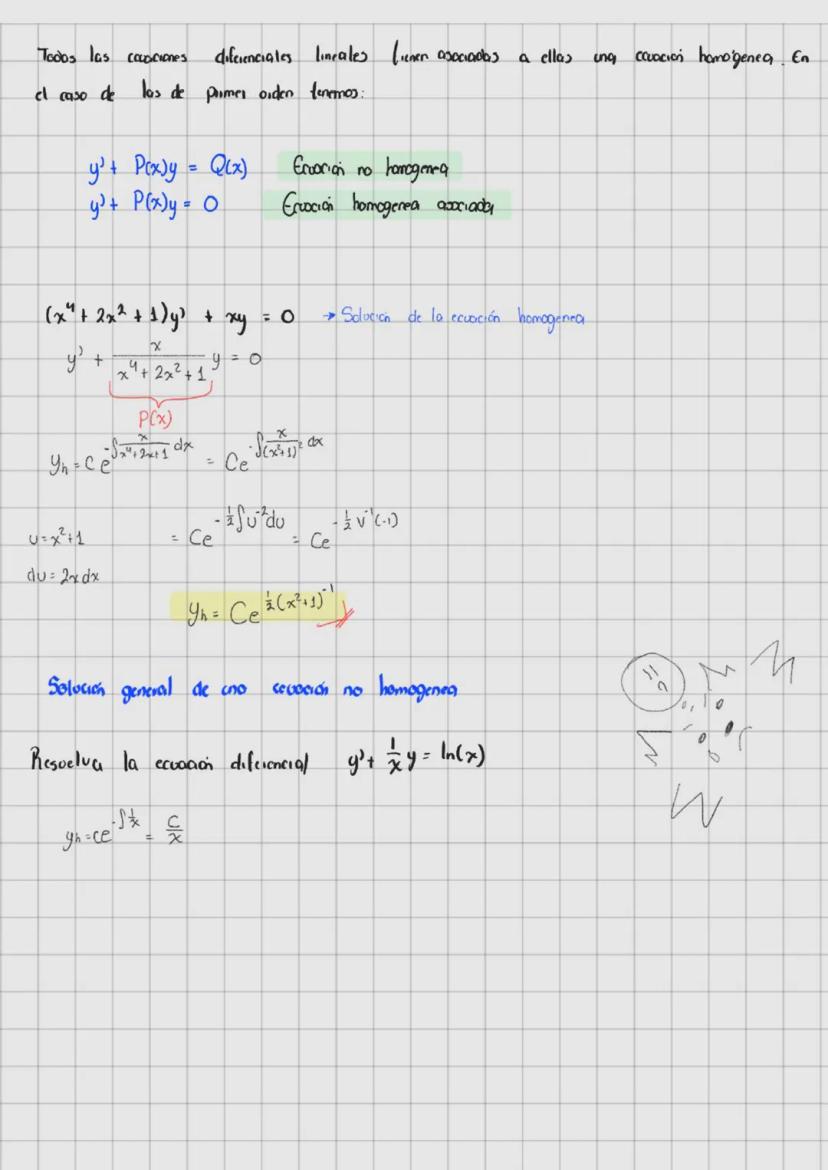 Todas las ecuaciones diferenciales lineales tienen asociadas a ellas una ecuación homogénea. En
el caso de las de primer orden tenemos:
y' + P(x)y = Q(x) Ecuación no homogenea
y' + P(x)y = 0 Ecuación homogenea asociada
(x⁴ + 2x² + 1)y' + xy = 0 → Solución de la ecuación homogenea
y' + x/(x⁴ + 2x² + 1) y = 0
P(x)
yₕ = Ce^(-∫ x/(x⁴+2x+1) dx) = Ce^(-∫ x/(x²+1)² dx)
u = x²+1 = Ce^(-1/2 ∫u⁻²du) = Ce^(-1/2 u⁻¹(-1))
du = 2x dx
yₕ = Ce^(1/2 (x²+1)⁻¹)
Solución general de una ecuación no homogenea
Resuelva la ecuación diferencial y' + 1/x y = ln(x)
yₕ = ce^(-∫1/x) = C/x